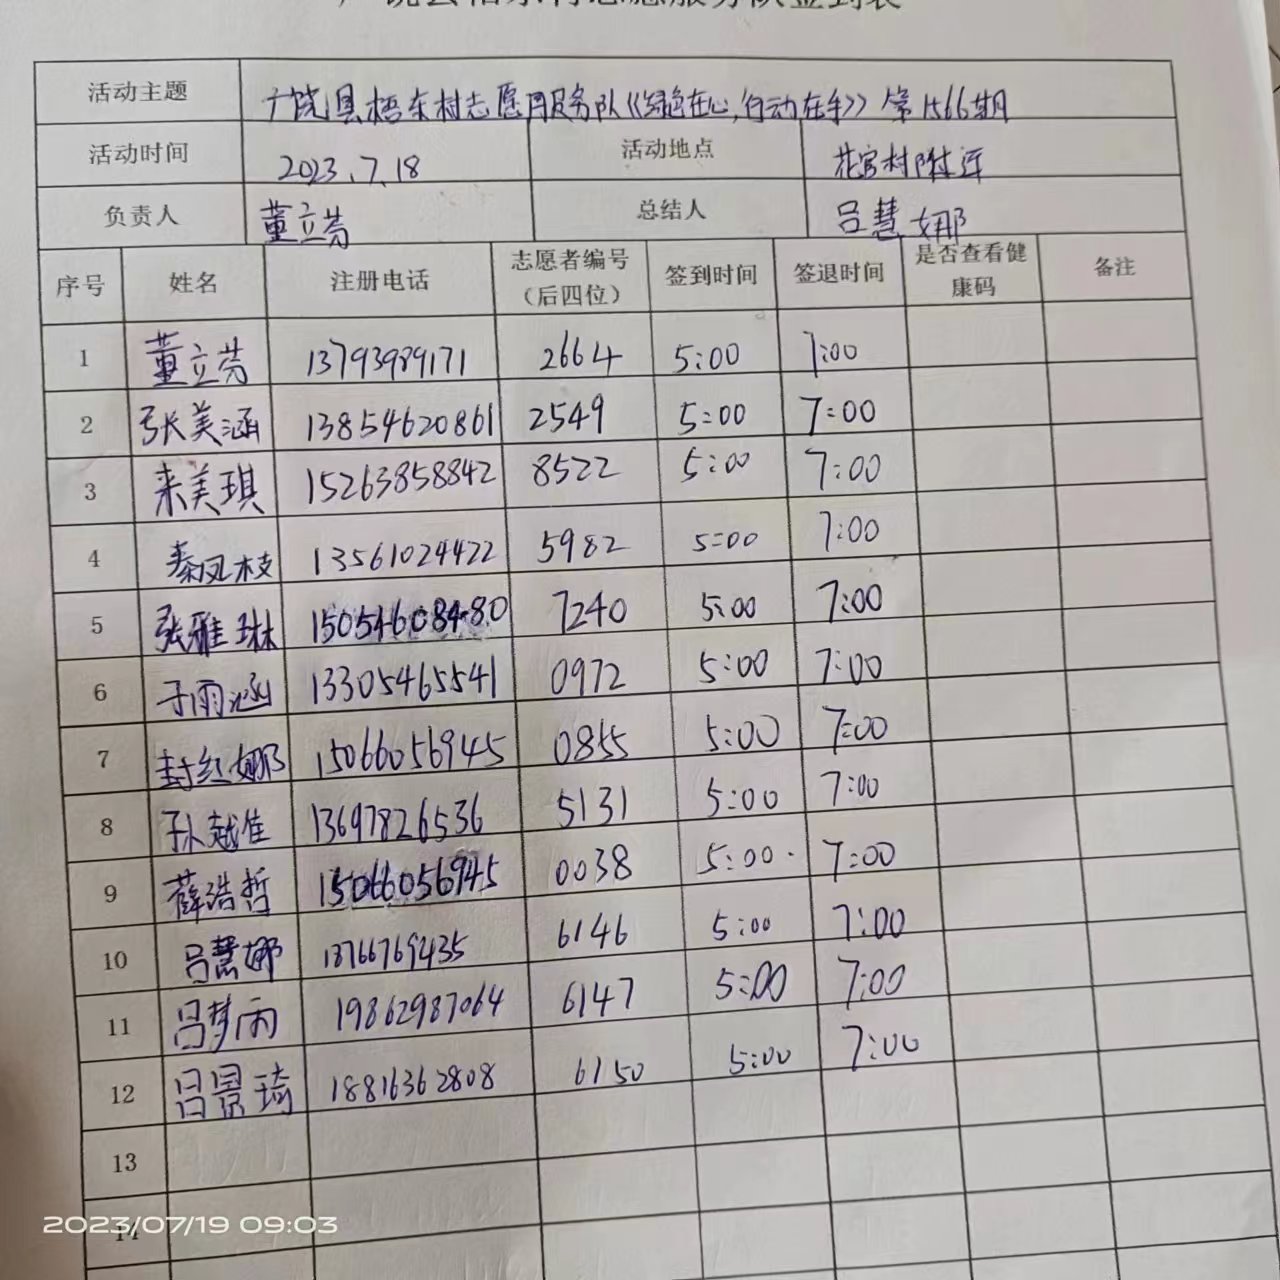 广饶县梧东村志愿服务队签到表
活动主题 广饶县梧东村志愿服务队《绿色在心,行动在手》第1566期
活动时间 2023.7.18 活动地点 花官村附近
负责人 董立芬 总结人 吕慧娜
序号 姓名 注册电话 志愿者编号（后四位） 签到时间 签退时间 是否查看健康码 备注
1 董立芬 13793989171 2664 5:00 7:00
2 张美涵 13854620861 2549 5:00 7:00
3 来美琪 15263858842 8522 5:00 7:00
4 秦凤枝 13561024422 5982 5:00 7:00
5 张雅琳 15054608480 7240 5:00 7:00
6 于雨涵 13305465541 0972 5:00 7:00
7 封红娜 15066056945 0855 5:00 7:00
8 孙越佳 13697826536 5131 5:00 7:00
9 薛浩哲 15066056945 0038 5:00 7:00
10 吕慧娜 13766769435 6146 5:00 7:00
11 吕梦雨 19862987064 6147 5:00 7:00
12 吕景琦 18816362808 6150 5:00 7:00
13
14
2023/07/19 09:03